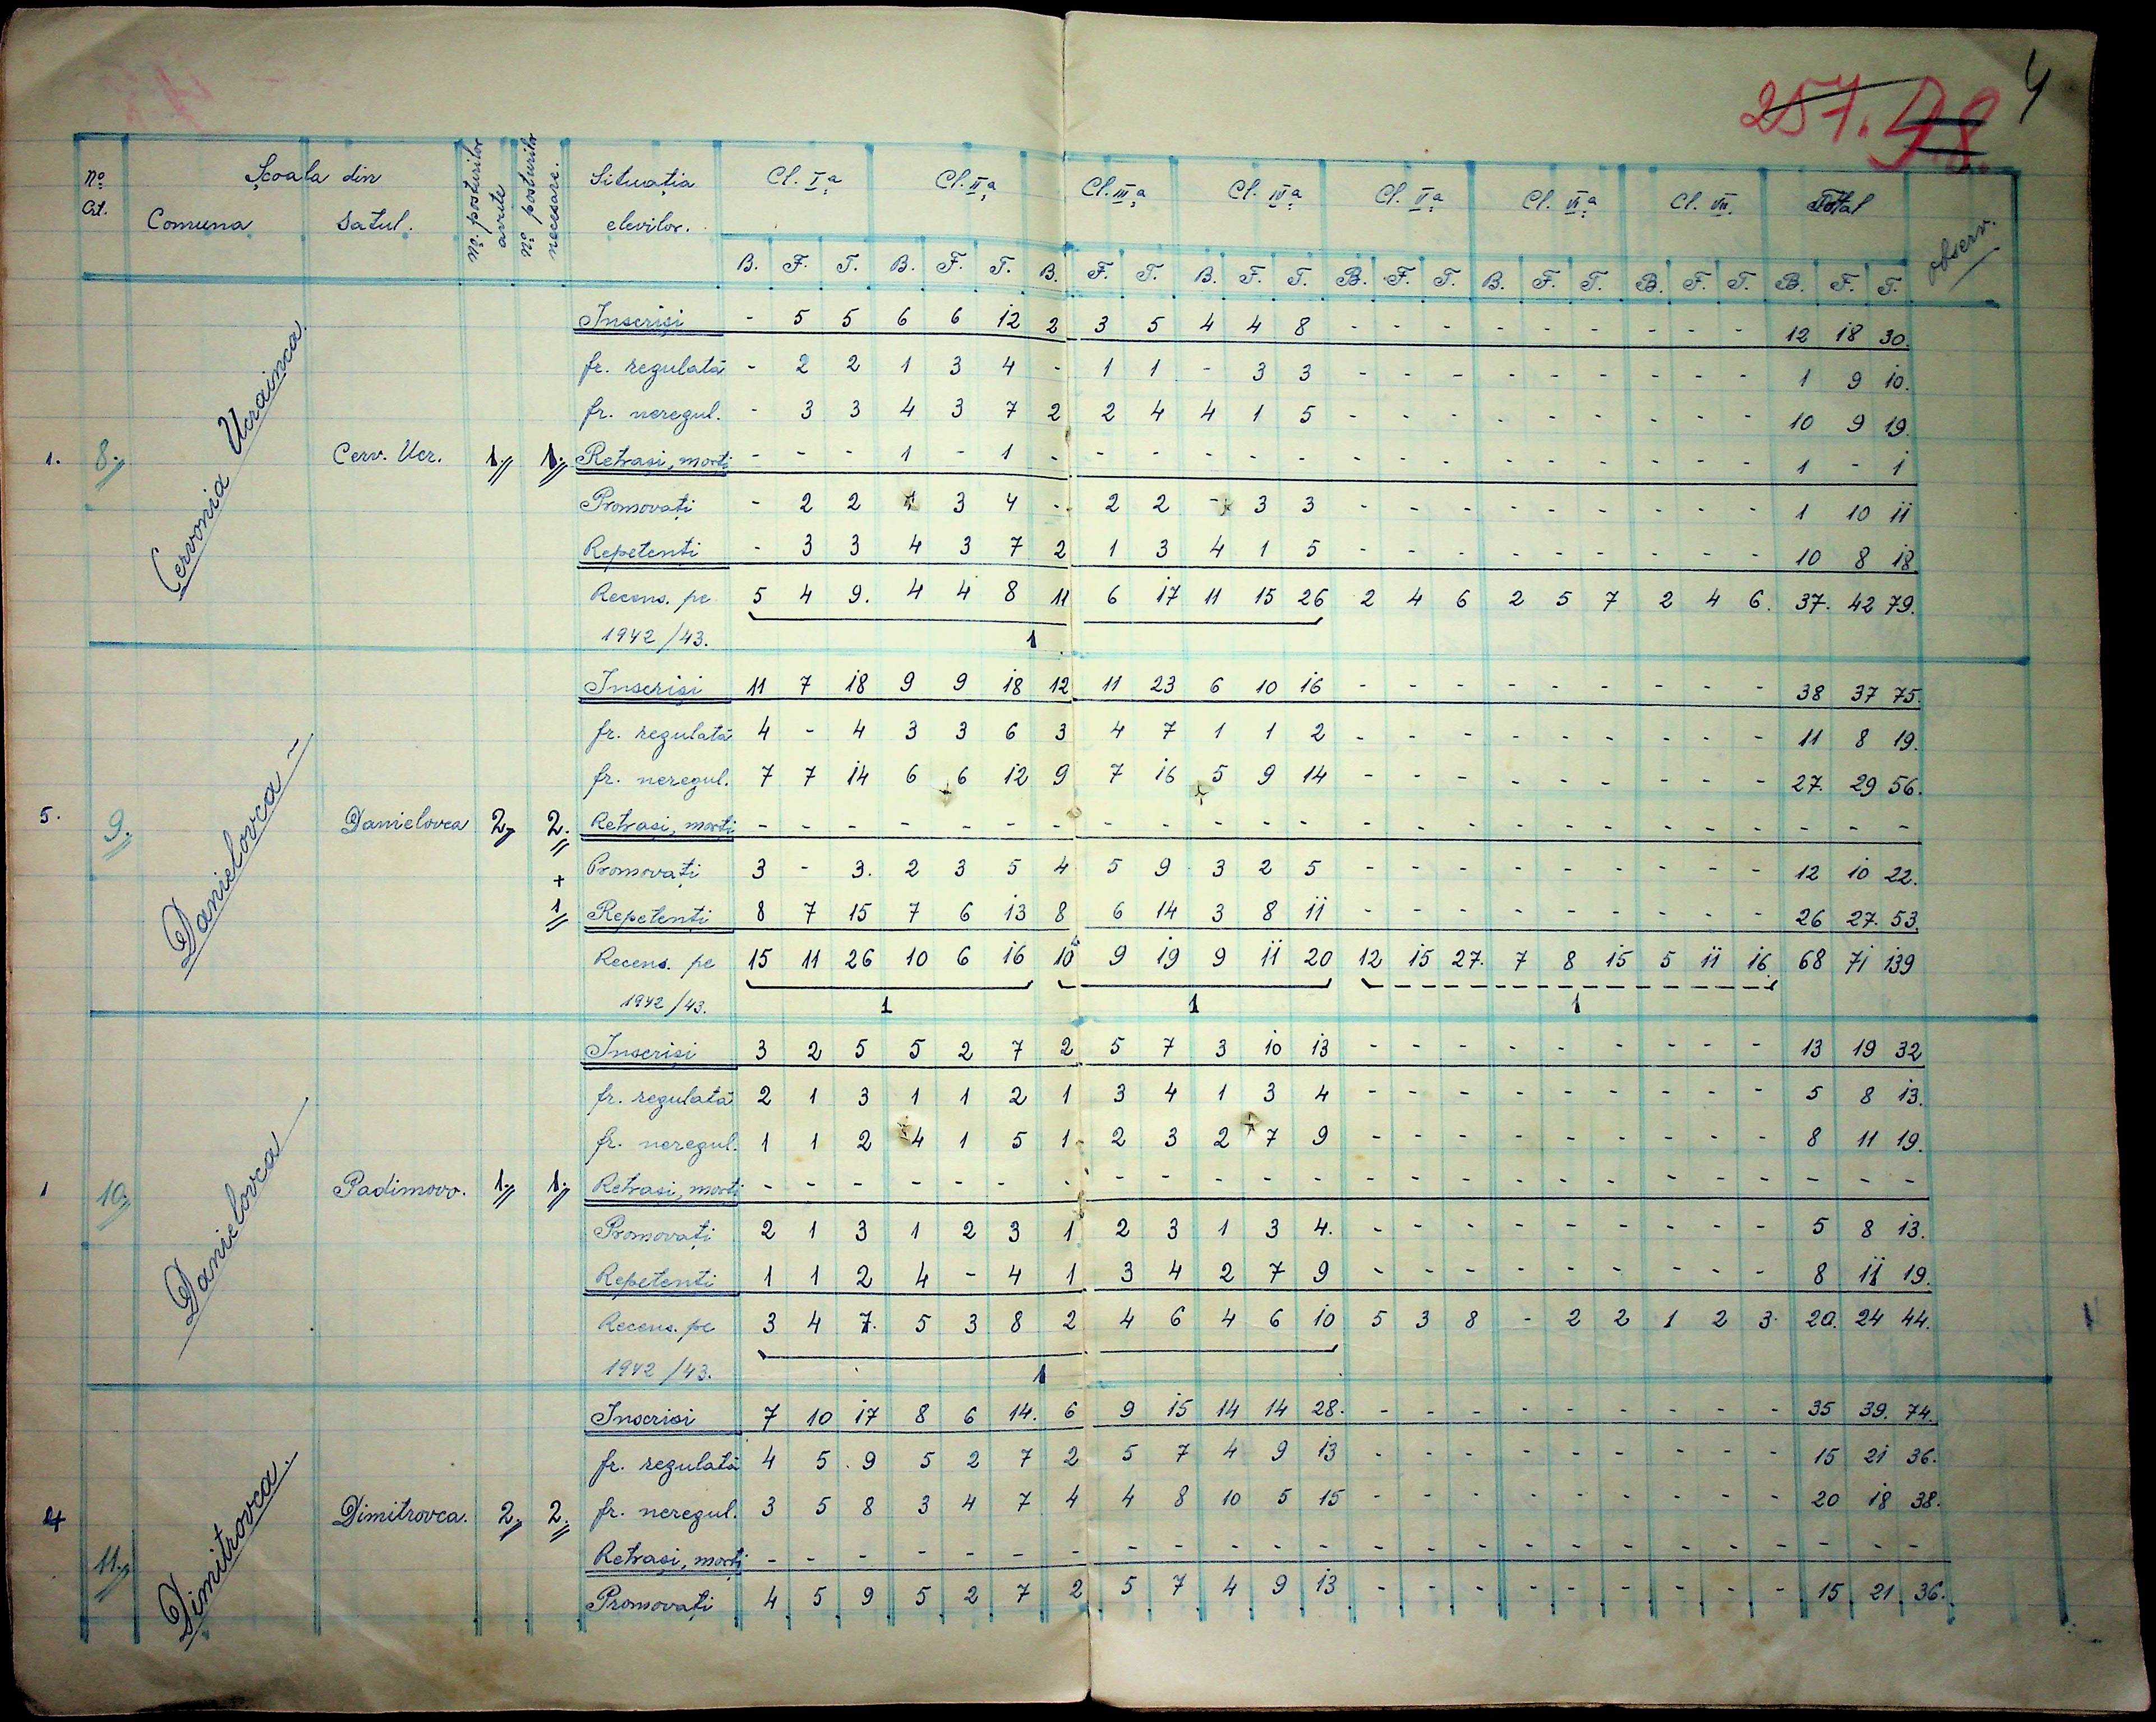 257. 98. 4
No Crt. Școala din No. posturilor avute No. posturilor necesare. Situația elevilor. Cl. Iª Cl. IIª Cl. IIIª Cl. IVª Cl. Vª Cl. VIª Cl. VII. Total observ.
Comuna Satul.
B. F. T. B. F. T. B. F. T. B. F. T. B. F. T. B. F. T. B. F. T. B. F. T.
Inscriși - 5 5 6 6 12 2 3 5 4 4 8 - - - - - - - - - 12 18 30.
fr. regulată - 2 2 1 3 4 - 1 1 - 3 3 - - - - - - - - - 1 9 10.
fr. neregul. - 3 3 4 3 7 2 2 4 4 1 5 - - - - - - - - - 10 9 19.
1. 8. Cervonia Ucrainca. Cerv. Ucr. 1. 1. Retrași, morți - - - 1 - 1 - - - - - - - - - - - - - - - 1 - 1
Promovați - 2 2 1 3 4 - 2 2 - 3 3 - - - - - - - - - 1 10 11
Repetenți - 3 3 4 3 7 2 1 3 4 1 5 - - - - - - - - - 10 8 18.
Recens. pe 5 4 9. 4 4 8 11 6 17 11 15 26 2 4 6 2 5 7 2 4 6. 37. 42 79.
1942/43. 1
Inscriși 11 7 18 9 9 18 12 11 23 6 10 16 - - - - - - - - - 38 37 75.
fr. regulată 4 - 4 3 3 6 3 4 7 1 1 2 - - - - - - - - - 11 8 19.
fr. neregul. 7 7 14 6 6 12 9 7 16 5 9 14 - - - - - - - - - 27. 29 56.
5. 9. Danielovca - Danielovca 2, 2. Retrași, morți - - - - - - - - - - - - - - - - - - - - - - - -
+ Promovați 3 - 3. 2 3 5 4 5 9 3 2 5 - - - - - - - - - 12 10 22.
1 Repetenți 8 7 15 7 6 13 8 6 14 3 8 11 - - - - - - - - - 26 27. 53.
Recens. pe 15 11 26 10 6 16 10 9 19 9 11 20 12 15 27. 7 8 15 5 11 16 68 71 139
1942/43. 1 1 1
Inscriși 3 2 5 5 2 7 2 5 7 3 10 13 - - - - - - - - - 13 19 32
fr. regulată 2 1 3 1 1 2 1 3 4 1 3 4 - - - - - - - - - 5 8 13.
fr. neregul. 1 1 2 4 1 5 1 2 3 2 7 9 - - - - - - - - - 8 11 19.
1 10. Danielovca Padimovo. 1. 1. Retrași, morți - - - - - - - - - - - - - - - - - - - - - - - -
Promovați 2 1 3 1 2 3 1 2 3 1 3 4. - - - - - - - - - 5 8 13.
Repetenți 1 1 2 4 - 4 1 3 4 2 7 9 - - - - - - - - - 8 11 19.
Recens. pe 3 4 7. 5 3 8 2 4 6 4 6 10 5 3 8 - 2 2 1 2 3. 20. 24 44.
1942/43. 1
Inscriși 7 10 17 8 6 14. 6 9 15 14 14 28. - - - - - - - - - 35 39. 74.
fr. regulată 4 5 9 5 2 7 2 5 7 4 9 13 - - - - - - - - - 15 21 36.
4 Dimitrovca. 2. 2. fr. neregul. 3 5 8 3 4 7 4 4 8 10 5 15 - - - - - - - - - 20 18 38.
11. Dimitrovca. Retrași, morți - - - - - - - - - - - - - - - - - - - - - - - -
Promovați 4 5 9 5 2 7 2 5 7 4 9 13 - - - - - - - - - 15 21 36.